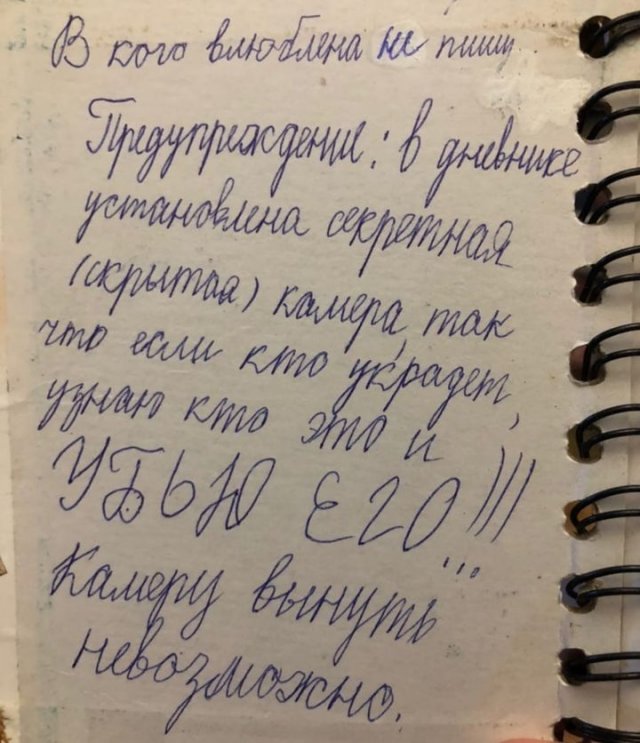 В кого влюблена не пишу
Предупреждение: в дневнике
установлена секретная
(скрытая) камера, так
что если кто украдет,
узнаю кто это и
УБЬЮ ЕГО!!!
Камеру вынуть
невозможно.